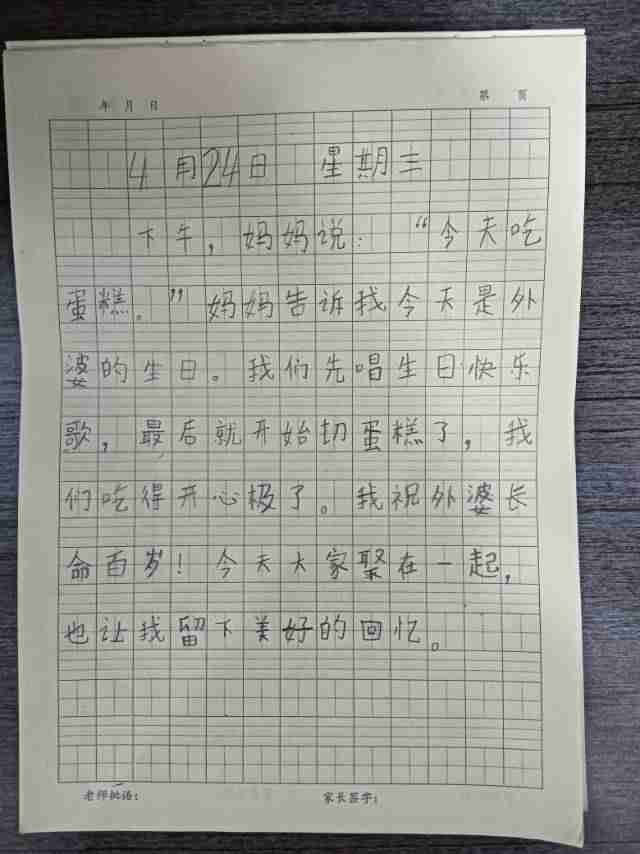 年 月 日 第 页
4月24日 星期三
下午，妈妈说：“今天吃
蛋糕。”妈妈告诉我今天是外
婆的生日。我们先唱生日快乐
歌，最后就开始切蛋糕了，我
们吃得开心极了。我祝外婆长
命百岁！今天大家聚在一起，
也让我留下美好的回忆。
老师批语： 家长签字：